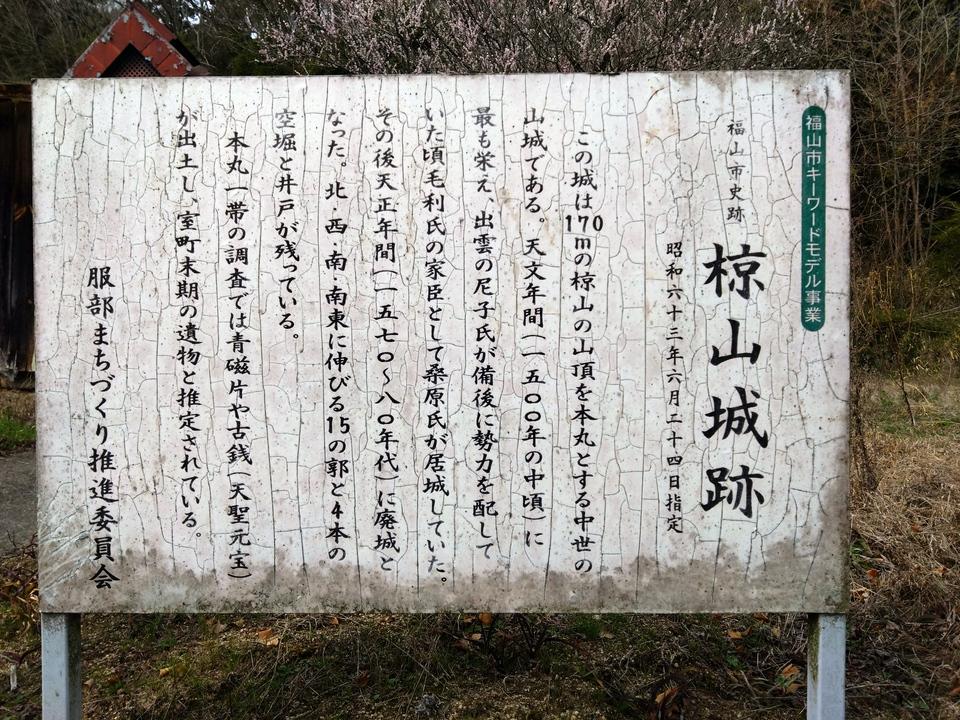 福山市キーワードモデル事業
福山市史跡
椋山城跡
昭和六十三年六月二十四日指定
この城は170mの椋山の山頂を本丸とする中世の
山城である。天文年間(一五〇〇年の中頃)に
最も栄え、出雲の尼子氏が備後に勢力を配して
いた頃毛利氏の家臣として桑原氏が居城していた。
その後天正年間(一五七〇～八〇年代)に廃城と
なった。北・西・南・南東に伸びる15の郭と4本の
空堀と井戸が残っている。
本丸一帯の調査では青磁片や古銭(天聖元宝)
が出土し、室町末期の遺物と推定されている。
服部まちづくり推進委員会